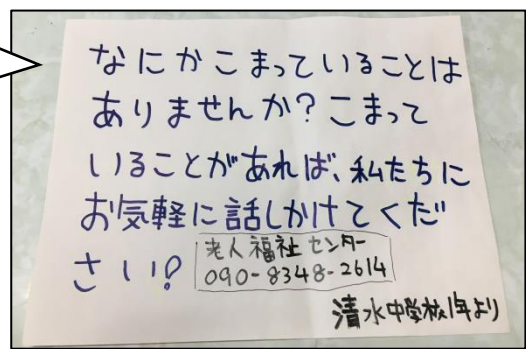 なにかこまっていることは
ありませんか？こまって
いることがあれば、私たちに
お気軽に話しかけてくだ
さい？
老人福祉センター
090-8348-2614
清水中学校1年より